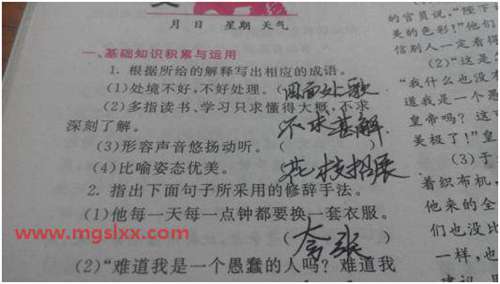 月 日 星期 天气
一、基础知识积累与运用
1. 根据所给的解释写出相应的成语。
(1)处境不好,不好处理。(四面处歌
(2)多指读书、学习只求懂得大概,不求
深刻了解。 (不求甚解
(3)形容声音悠扬动听。(
(4)比喻姿态优美。 (花枝招展
2. 指出下面句子所采用的修辞手法。
(1)他每一天每一点钟都要换一套衣服。
(夸张
(2)“难道我是一个愚蠢的人吗? 难道我
的官员说,“陛下
美的色彩!”他们
信别人一定看得
(2)“这是
“我什么也没
道我是一个愚
皇帝吗?这
美极了!”皇
(3)于
着织布机,
他来的全
们也没比
一样,也
建议,用
www.mgslxx.com